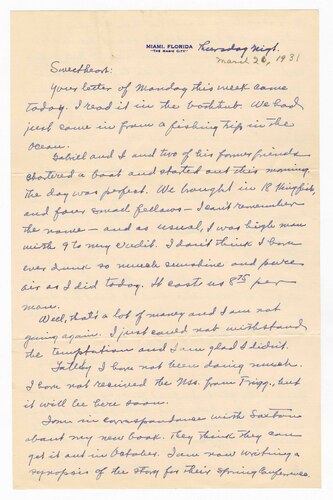 MIAMI, FLORIDA
"THE MAGIC CITY"
Thursday Night.
March 26, 1931
Sweetheart:
Your letter of Monday this week came
today. I read it in the bathtub. We had
just come in from a fishing trip in the
ocean.
and I and two of his former friends
chartered a boat and started out this morning.
the day was perfect. We brought in 18 Kingfish,
and four small fellows - I can't remember
the name - and as usual, I was high man
with 9 to my credit. I don't think I have
ever drunk so much sunshine and pure
air as I did today. It cost us 8.75 per
man.
Well, that's a lot of money and I am not
going again. I just could not withstand
the temptation and I am glad I didn't.
Lately I have not been doing much.
I have not received the Mss. from Frigg, but
it will be here soon.
I am in correspondence with Saxtons
about my new book. They think they can
get it out in October. I am now writing a
synopsis of the story for their Spring Conference.